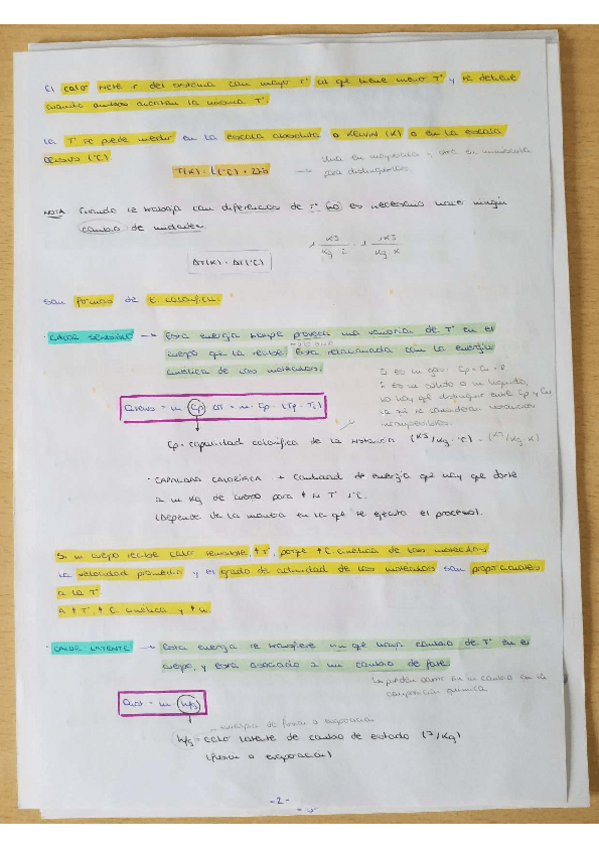 El calor fluye del sistema con mayor Tª al que tiene menor Tª y se detiene
cuando ambos alcanzan la misma Tª.
La Tª se puede medir en la escala absoluta o KELVIN (K) o en la escala
Celsius (°C)
T(K) = t(°C) + 273
una en mayúscula y otra en minúscula
para distinguirlas.
NOTA: Cuando se trabaja con diferencias de Tª no es necesario hacer ningún
cambio de unidades
1 KJ/Kg °C = 1 KJ/Kg K
ΔT(K) = ΔT(°C)
Son formas de E. calorífica:
· CALOR SENSIBLE → Esta energía provoca una variación de Tª en el
cuerpo que la recibe. Está relacionada con la energía
cinética de las moléculas.
Si es un gas: Cp = Cv + R
Si es un sólido o un líquido,
no hay que distinguir entre Cp y Cv
Qsens = m Cp ΔT = m · Cp · (Tf - Ti)
Cp = capacidad calorífica de la sustancia (KJ/Kg·°C) = (KJ/Kg·K)
· CAPACIDAD CALORÍFICA → Cantidad de energía que hay que darle
a un Kg de cuerpo para ↑ su Tª 1°C.
(Depende de la manera en la que se ejecuta el proceso).
Si un cuerpo recibe calor sensible, ↑Tª, porque ↑ E. cinética de las moléculas
La velocidad promedio y el grado de actividad de las moléculas son proporcionales
a la Tª
A ↑ Tª, ↑ E. cinética y ↑ u
· CALOR LATENTE → Esta energía se transfiere sin que haya cambio de Tª en el
cuerpo, y está asociado a un cambio de fase.
composición química
Qlat = m
entalpía de fusión o evaporación
= calor latente de cambio de estado (J/Kg)
(fusión o evaporación)
- 2 -